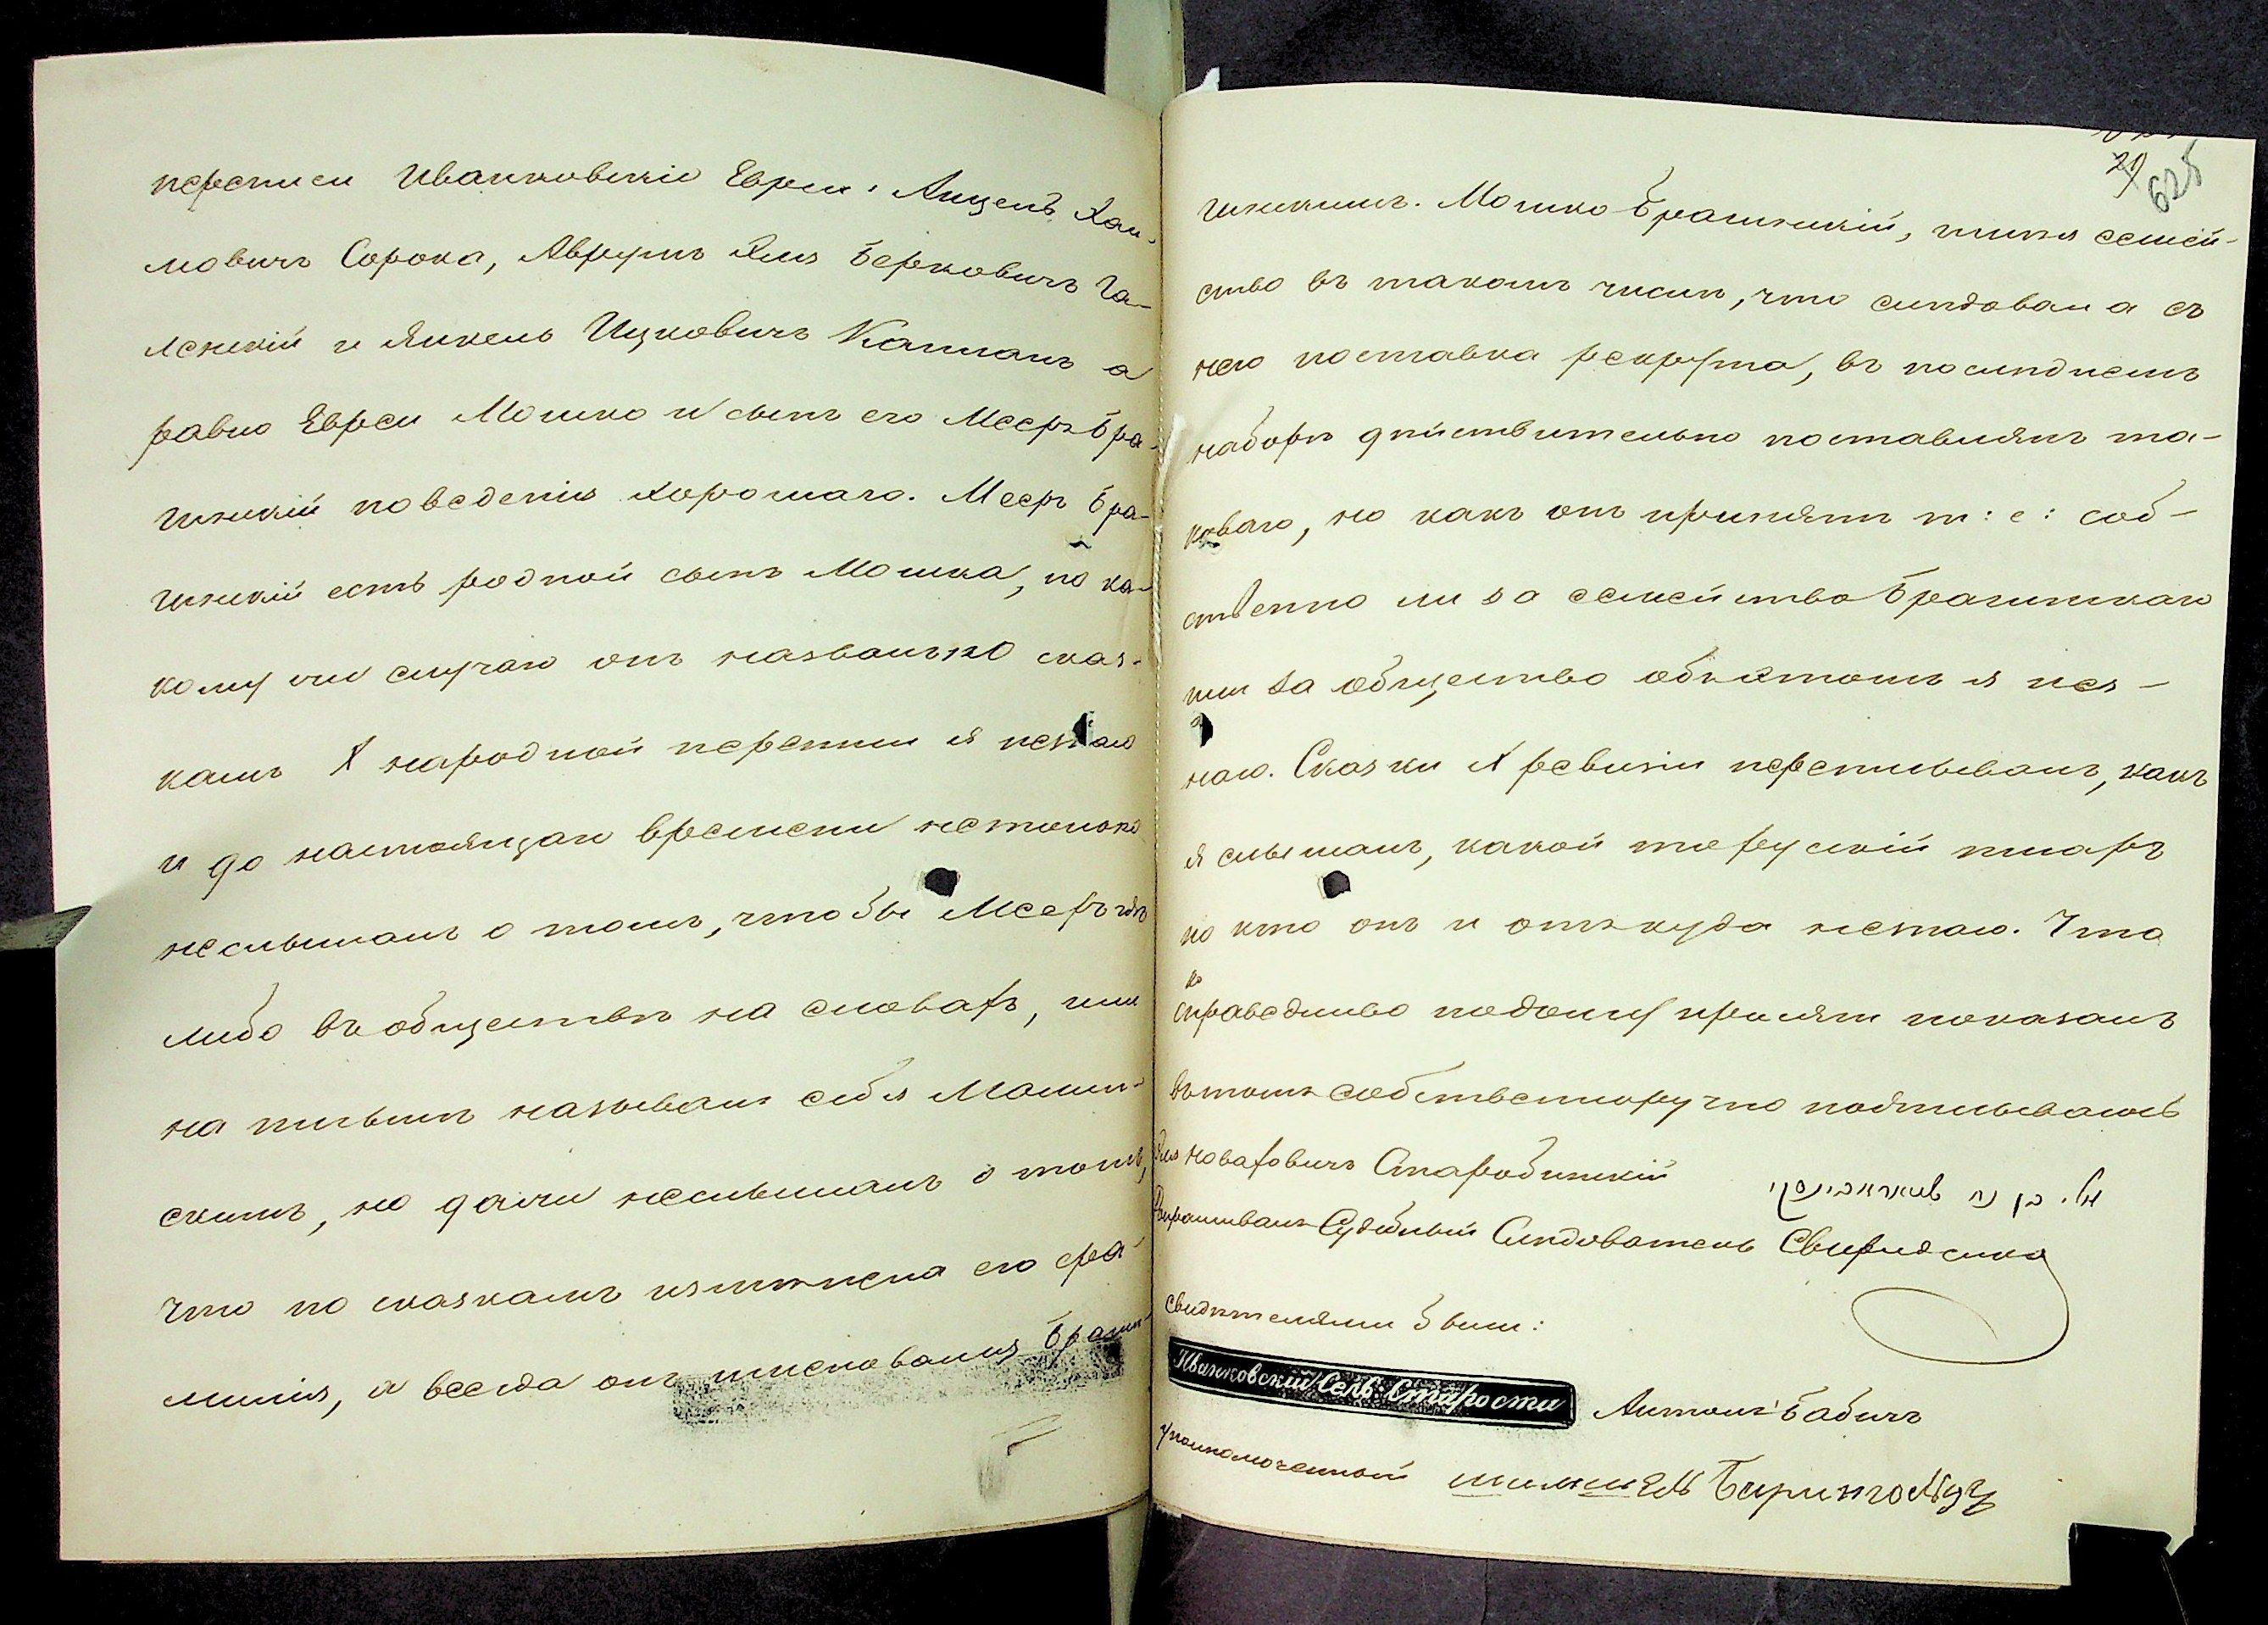 переписи Иванковскіе Евреи: Анцель Хаи-
мовичъ Сорока, Аврумъ Эля Берковичъ Га-
ленскій и Янкель Ицковичъ Капланъ а
равно Евреи Мошко и сынъ его Мееръ Бра-
гинскій поведенія хорошаго. Мееръ Бра-
гинскій есть родной сынъ Мошка, по ка-
кому ли случаю онъ названъ по сказ-
камъ Х народной переписи я незнаю
и до настоящаго времени нетолько
неслышалъ о томъ, чтобы Мееръ гдѣ
либо въ обществѣ на словахъ, или
на письмѣ называлъ себя
скимъ, но даже неслышалъ о томъ,
что по сказкамъ измѣнена его фа-
милія, а всегда онъ именовался Брагин-
29
625
гинскимъ. Мошко Брагинскій, имѣя семей-
ство въ такомъ числѣ, что слѣдовала съ
него поставка рекрута, въ послѣднемъ
наборѣ дѣйствительно поставлялъ та-
коваго, но какъ онъ принятъ т: е: соб-
ственно ли за семейство Брагинскаго
или за общество обѣ этомъ я нез-
наю. Сказки Х ревизіи переписывалъ, какъ
я слышалъ, какой то русскій писарь
но кто онъ и отъкуда незнаю. Что
справедливо подъ присягою показалъ
въ томъ собственноручно подписываюсь
Эля Старобинскій
Спрашивалъ Судебный Слѣдователь Свириденко
свидѣтелями были:
Иванковскій Сель. Старости Антонъ Бабичъ
уполномоченный